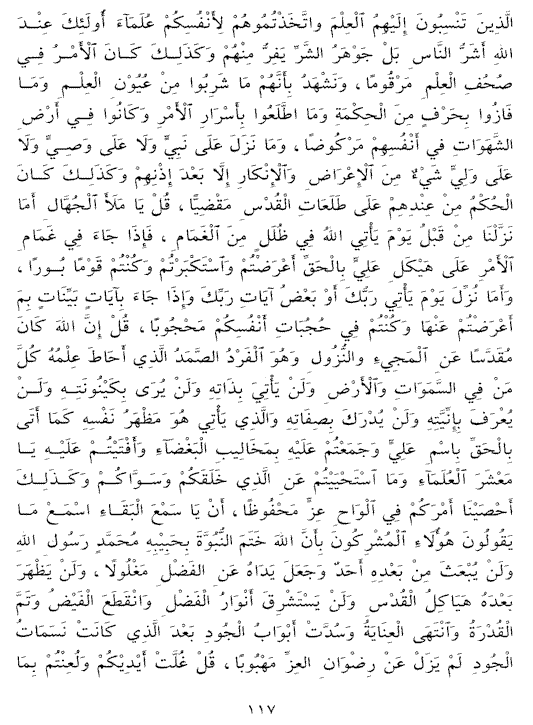 ٱلَّذِينَ تَنْسِبُونَ إِلَيْهِمُ ٱلْعِلْمَ وٱتَّخَذْتُمُوهُمْ لِأَنْفُسِكُمْ عُلَمَآءَ أُولَئِكَ عِنْدَ
اللهِ أَشَرُّ ٱلنَّاسِ بَلْ جَوْهَرُ ٱلشَّرِّ يَفِرُّ مِنْهُمْ وَكَذَلِكَ كَانَ ٱلْأَمْرُ فِي
صُحُفِ ٱلْعِلْمِ مَرْقُومًا، وَنَشْهَدُ بِأَنَّهُمْ مَا شَرِبُوا مِنْ عُيُونِ ٱلْعِلْمِ وَمَا
فَازُوا بِحَرْفٍ مِنَ ٱلْحِكْمَةِ وَمَا ٱطَّلَعُوا بِأَسْرَارِ ٱلْأَمْرِ وَكَانُوا فِي أَرْضِ
ٱلشَّهَوَاتِ في أَنْفُسِهِمْ مَرْكُوضًا، وَمَا نَزَلَ عَلَى نَبِيٍّ وَلَا عَلَى وَصِيٍّ وَلَا
عَلَى وَلِيٍّ شَيْءٌ مِنَ ٱلْإِعْرَاضِ وَٱلْإِنْكَارِ إِلَّا بَعْدَ إِذْنِهِمْ وَكَذَلِكَ كَانَ
ٱلْحُكْمُ مِنْ عِنْدِهِمْ عَلَى طَلَعَاتِ ٱلْقُدْسِ مَقْضِيًّا، قُلْ يَا مَلَأَ ٱلْجُهَّالِ أَمَا
نَزَّلْنَا مِنْ قَبْلُ يَوْمَ يَأْتِي اللهُ فِي ظُلَلٍ مِنَ ٱلْغَمَامِ، فَإِذَا جَاءَ فِي غَمَامِ
ٱلْأَمْرِ عَلَى هَيْكَلِ عَلِيٍّ بِٱلْحَقِّ أَعْرَضْتُمْ وَٱسْتَكْبَرْتُمْ وَكُنْتُمْ قَوْمًا بُورًا،
وَأَمَا نُزِّلَ يَوْمَ يَأْتِي رَبُّكَ أَوْ بَعْضُ آيَاتِ رَبِّكَ وَإِذَا جَاءَ بِآيَاتٍ بَيِّنَاتٍ بِمَ
أَعْرَضْتُمْ عَنْهَا وَكُنْتُمْ فِي حُجُبَاتِ أَنْفُسِكُمْ مَحْجُوبًا، قُلْ إِنَّ اللهَ كَانَ
مُقَدَّسًا عَنِ ٱلْمَجِيءِ وَالنُّزُولِ وَهُوَ ٱلْفَرْدُ الصَّمَدُ الَّذِي أَحَاطَ عِلْمُهُ كُلَّ
مَنْ فِي السَّمَوَاتِ وَٱلْأَرْضِ وَلَنْ يَأْتِيَ بِذَاتِهِ وَلَنْ يُرَى بِكَيْنُونَتِهِ وَلَنْ
يُعْرَفَ بِإِنِّيَّتِهِ وَلَنْ يُدْرَكَ بِصِفَاتِهِ وَالَّذِي يَأْتِي هُوَ مَظْهَرُ نَفْسِهِ كَمَا أَتَى
بِالْحَقِّ بِاسْمِ عَلِيٍّ وَجَمَعْتُمْ عَلَيْهِ بِمَخَالِيبِ ٱلْبَغْضَآءِ وَأَفْتَيْتُمْ عَلَيْهِ يَا
مَعْشَرَ ٱلْعُلَمَآءِ وَمَا ٱسْتَحْيَيْتُمْ عَنِ الَّذِي خَلَقَكُمْ وَسَوَّاكُمْ وَكَذَلِكَ
أَحْصَيْنَا أَمْرَكُمْ فِي أَلْوَاحِ عِزٍّ مَحْفُوظًا، أَنْ يَا سَمْعَ ٱلْبَقَاءِ اسْمَعْ مَا
يَقُولُونَ هٰؤُلَاءِ ٱلْمُشْرِكُونَ بِأَنَّ اللهَ خَتَمَ النُّبُوَّةَ بِحَبِيبِهِ مُحَمَّدٍ رَسُولِ اللهِ
وَلَنْ يُبْعَثَ مِنْ بَعْدِهِ أَحَدٌ وَجَعَلَ يَدَاهُ عَنِ الْفَضْلِ مَغْلُولًا، وَلَنْ يَظْهَرَ
بَعْدَهُ هَيَاكِلُ ٱلْقُدْسِ وَلَنْ يَسْتَشْرِقَ أَنْوَارُ الْفَضْلِ وَانْقَطَعَ الْفَيْضُ وَتَمَّ
الْقُدْرَةُ وَٱنْتَهَى الْعِنَايَةُ وَسُدَّتْ أَبْوَابُ الْجُودِ بَعْدَ الَّذِي كَانَتْ نَسَمَاتُ
الْجُودِ لَمْ يَزَلْ عَنْ رِضْوَانِ العِزِّ مَهْبُوبًا، قُلْ غُلَّتْ أَيْدِيْكُمْ وَلُعِنْتُمْ بِمَا
١١٧